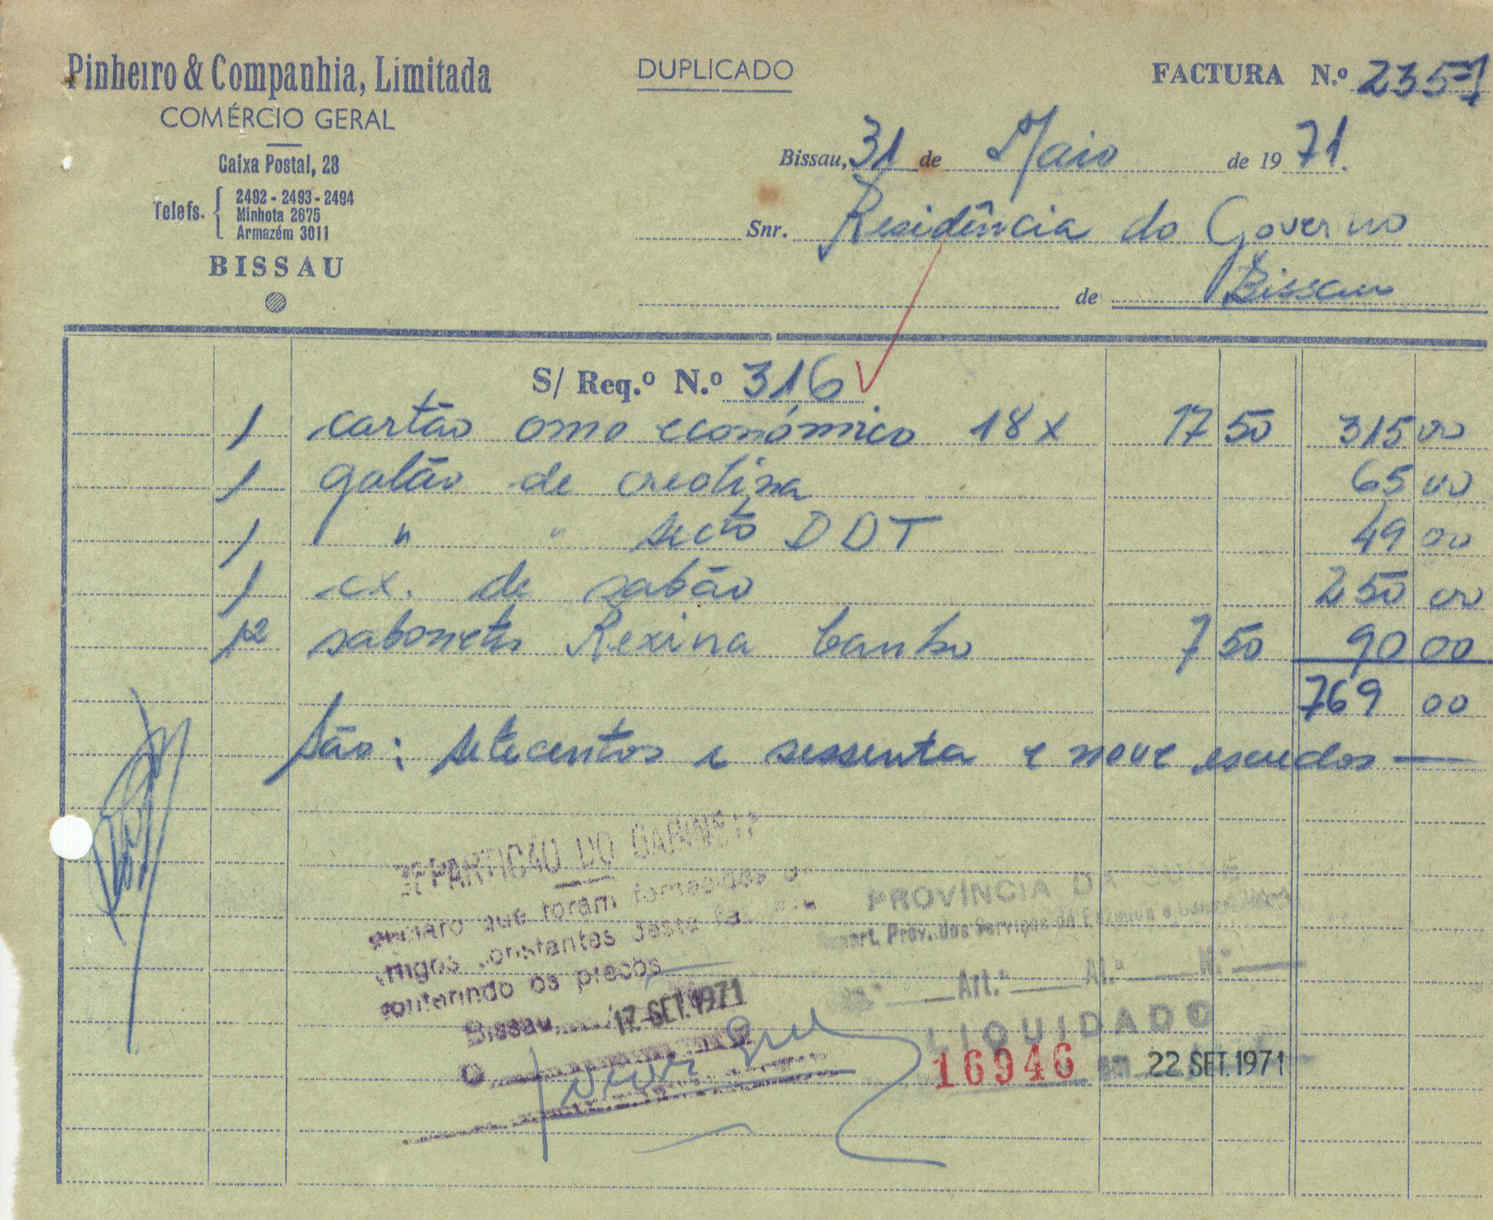 Pinheiro & Companhia, Limitada
COMÉRCIO GERAL
Caixa Postal, 28
Telefs. 2492 - 2493 - 2494
Minhota 2675
Armazém 3011
BISSAU
DUPLICADO
FACTURA N.º 2357
Bissau, 31 de Maio de 1971.
Snr. Residência do Governo
de Bissau
S/ Req.º N.º 316
1 cartão omo económico 18 x 17 50 315 00
1 galão de creolina 65 00
1 " " secto DDT 49 00
1 cx. de sabão 250 00
12 sabonetes Rexina banho 7 50 90 00
769 00
São: setecentos e sessenta e nove escudos —
REPARTIÇÃO DO GABINETE
que foram fornecidos os
artigos constantes desta
conferindo os preços
Bissau, 17. SET. 1971
O
PROVÍNCIA DA GUINÉ
Repart. Prov. dos Serviços de
Art.º Al.ª N.º
LIQUIDADO
16946 em 22 SET. 1971